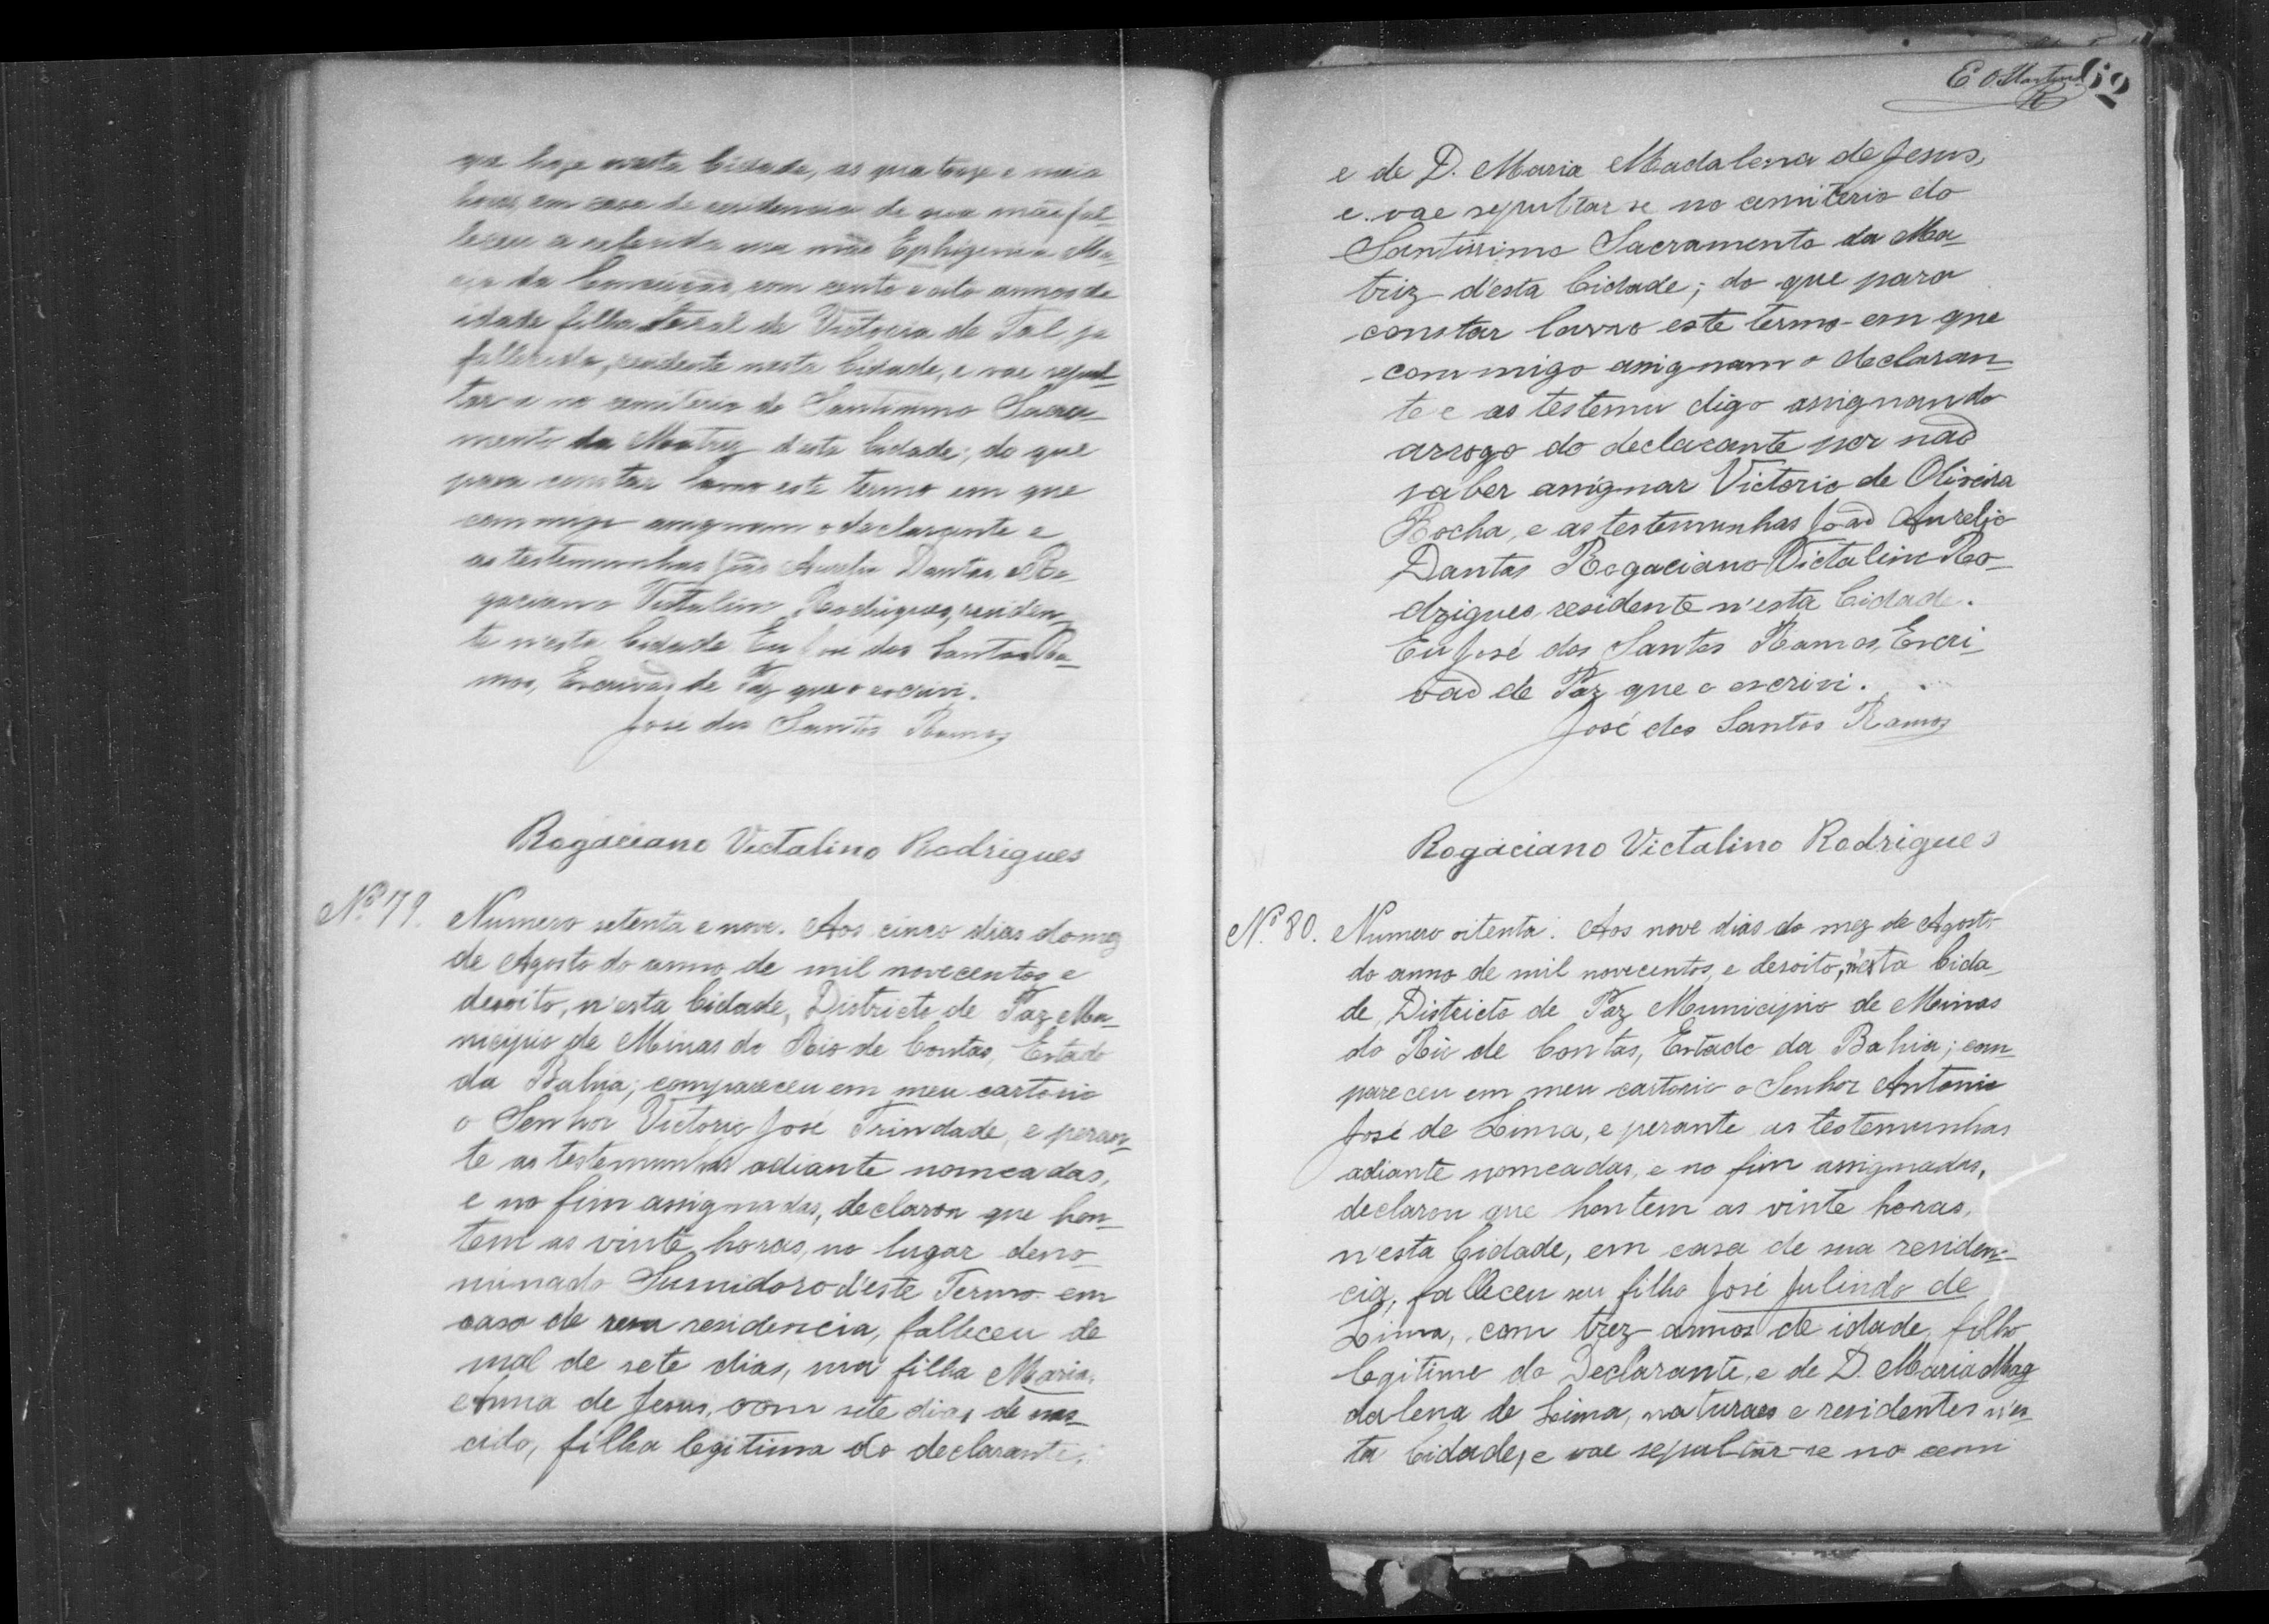 que hoje nesta Cidade, as quatorze e meia
horas, em casa de residencia de sua mãe fal-
leceu a referida sua mãe Ephigenia Ma-
ria da Conceição, com cento e oito annos de
idade filha natural de Victoria de Tal, ja
fallecida, residente nesta Cidade, e vae sepul-
tar-se no cemiterio do Santissimo Sacra-
mento da Matriz desta Cidade; do que
para constar lavro este termo em que
commigo assignam o declarante e
as testemunhas João Aurelio Dantas e Ro-
gaciano Victalino Rodrigues, residen-
te n'esta Cidade Eu José dos Santos Ra-
mos, Escrivão de Paz que o escrivi.
José dos Santos Ramos
Rogaciano Victalino Rodrigues
Nº 79. Numero setenta e nove. Aos cinco dias do mez
de Agosto do anno de mil novecentos e
desoito, n'esta Cidade, Districto de Paz Mu-
nicipio de Minas do Rio de Contas, Estado
da Bahia; compareceu em meu cartorio
o Senhor Victorio José Trindade, e peran-
te as testemunhas adiante nomeadas,
e no fim assignadas, declarou que hon-
tem as vinte horas, no lugar deno-
minado Sumidoro d'este Termo em
casa de sua residencia, falleceu de
mal de sete dias, sua filha Maria
Anna de Jesus, com sete dias de nas-
cido, filha legitima do declarante,
E. O. Martins 62
e de D. Maria Madalena de Jesus,
e vae sepultar se no cemiterio do
Santissimo Sacramento da Ma-
triz d'esta Cidade; do que para
constar lavro este termo em que
commigo assignam o declaran-
te e as testemu digo assignando
arrogo do declarante por não
saber assignar Victorio de Oliveira
Rocha, e as testemunhas João Aurelio
Dantas Rogaciano Victalino Ro-
drigues, residente n'esta Cidade.
Eu José dos Santos Ramos, Escri-
vão de Paz que o escrivi.
José dos Santos Ramos
Rogaciano Victalino Rodrigues
Nº 80. Numero oitenta. Aos nove dias do mez de Agosto
do anno de mil novecentos e desoito, n'esta Cida-
de, Districto de Paz Municipio de Minas
do Rio de Contas, Estado da Bahia; com-
pareceu em meu cartorio o Senhor Antonio
José de Lima, e perante as testemunhas
adiante nomeadas, e no fim assignadas,
declarou que hontem as vinte horas,
n'esta Cidade, em casa de sua residen-
cia, falleceu seu filho José Julindo de
Lima, com trez annos de idade, filho
legitimo do Declarante, e de D. Maria Mag
dalena de Lima, naturaes e residentes n'es-
ta Cidade, e vae sepultar-se no cemi